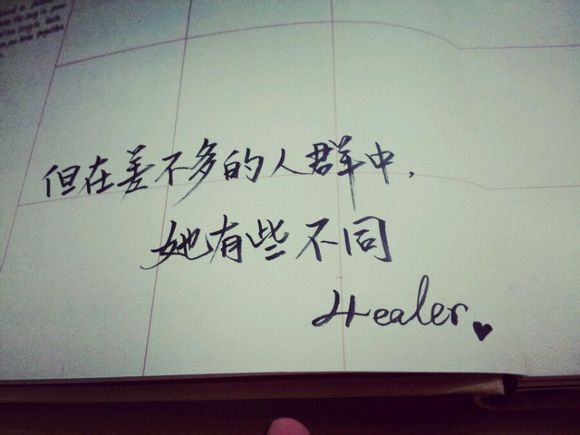 但在差不多的人群中，
她有些不同
Healer ♥